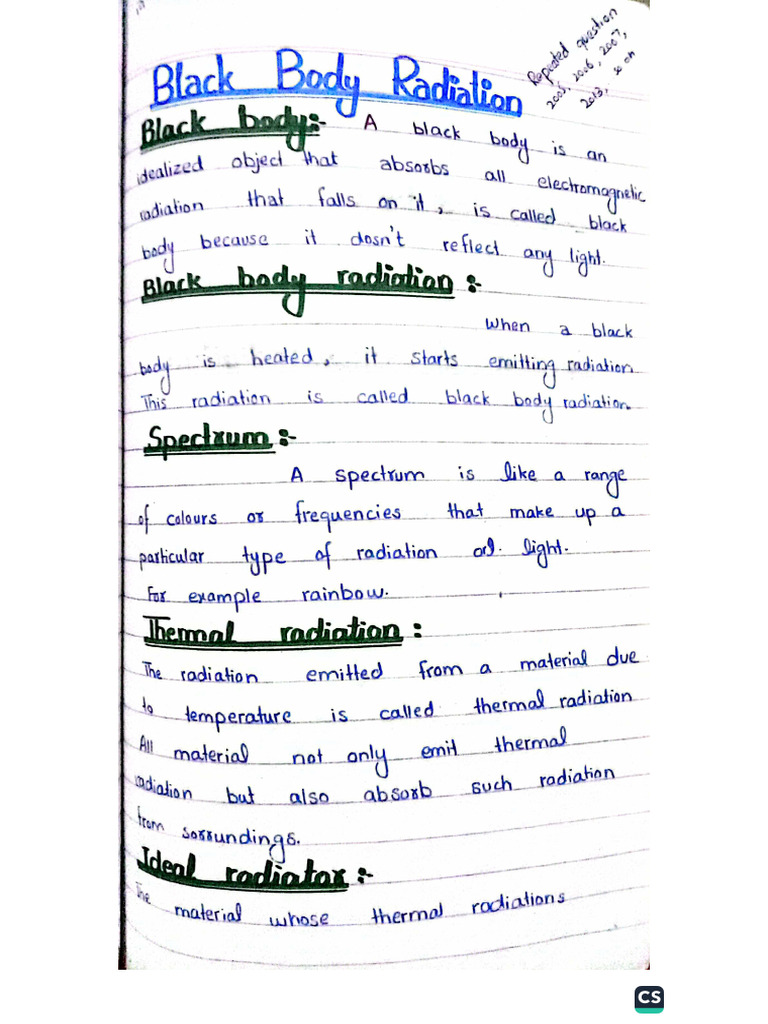 Black Body Radiation
Repeated question
2005, 2006, 2007,
2013, so on
Black body:- A black body is an
idealized object that absorbs all electromagnetic
radiation that falls on it, is called black
body because it dosn't reflect any light.
Black body radiation:-
When a black
body is heated, it starts emitting radiation
This radiation is called black body radiation.
Spectrum:-
A spectrum is like a range
of colours or frequencies that make up a
particular type of radiation light.
For example rainbow.
Thermal radiation:
The radiation emitted from a material due
to temperature is called thermal radiation
All material not only emit thermal
radiation but also absorb such radiation
from sorrundings.
Ideal radiator:-
The material whose thermal radiations
CS